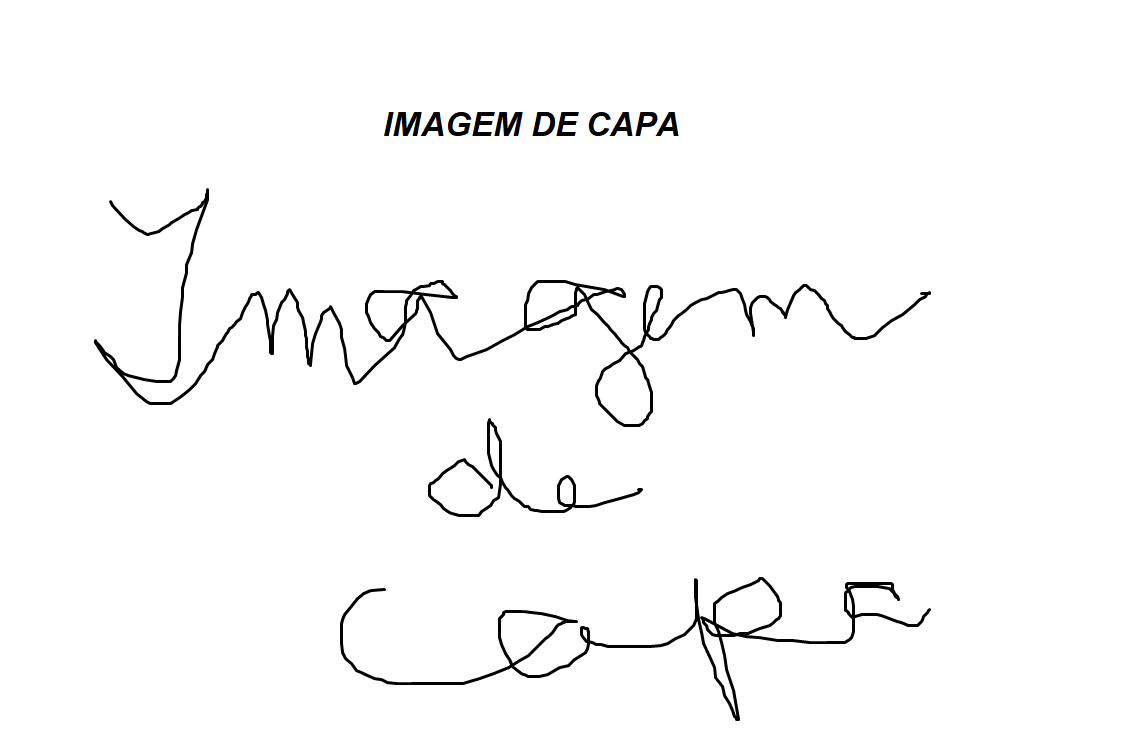 IMAGEM DE CAPA
Imagem
de
Capa